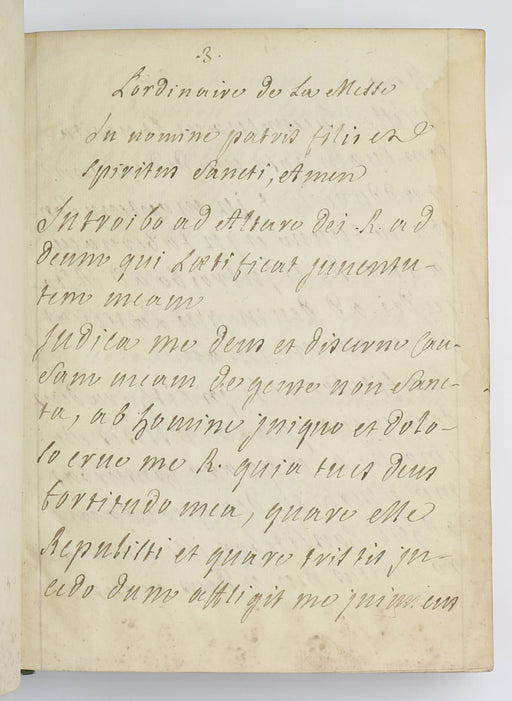 .3.
Lordinaire de La Messe
In nomine patris filii et
spiritus sancti, Amen
Introibo ad Altare dei R. ad
deum qui Lætificat juventu-
tem meam
Judica me deus et discerne Cau-
sam meam de gente non Sanc-
ta, ab homine jniquo et dolo-
so erue me R. quia tu es deus
fortitudo mea, quare Me
Repulisti et quare tristis jn-
cedo dum affligit me jnimicus